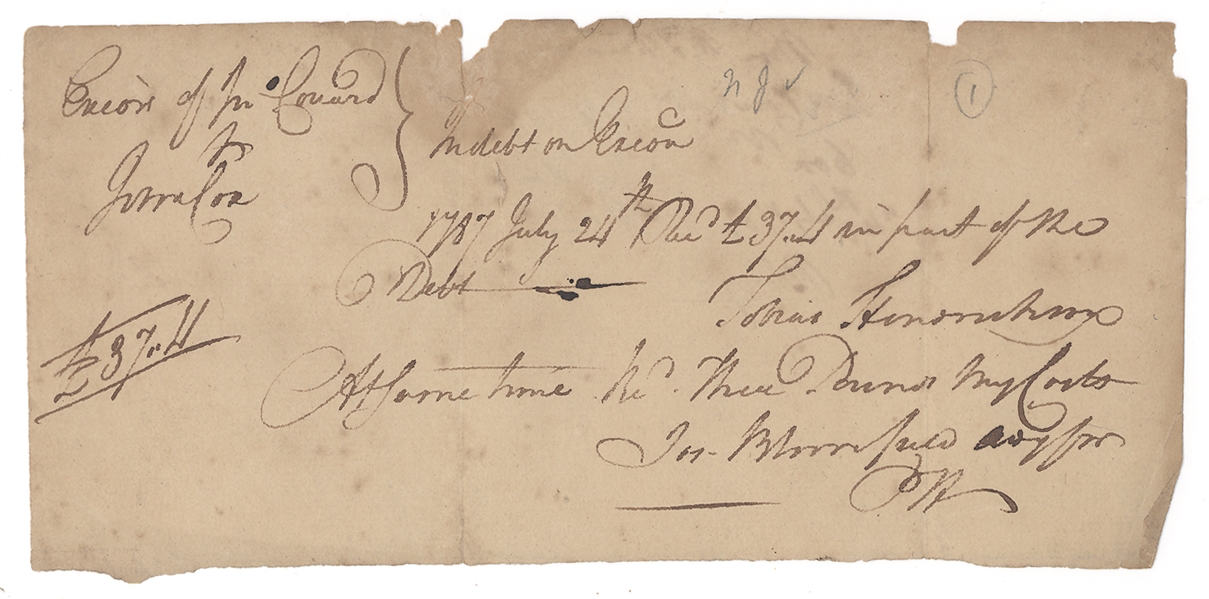 Execors of Jn. Covard
N J ✓
1
In debt on Execon
John Cox
1787 July 24th Recd £37..4 in part of the
Debt
Tobias Hendrickson
£37..4
At same time Recd. Three Pounds My Costs
Jos. Bloomfield atty for
Plt